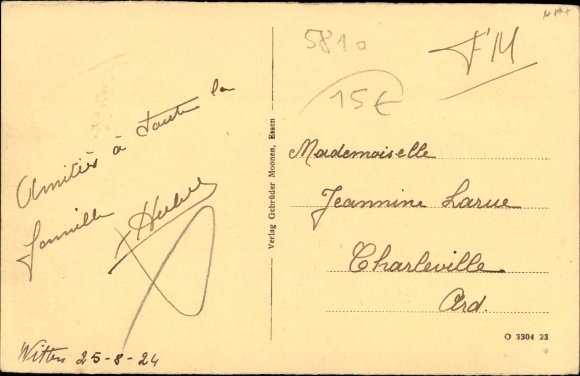 Amitiés à toute la
famille
Witten 25-8-24
Verlag Gebrüder Moonen, Essen
5810
15€
F.M
Mademoiselle
Jeannine Larue
Charleville
Ard.
O 3304 23